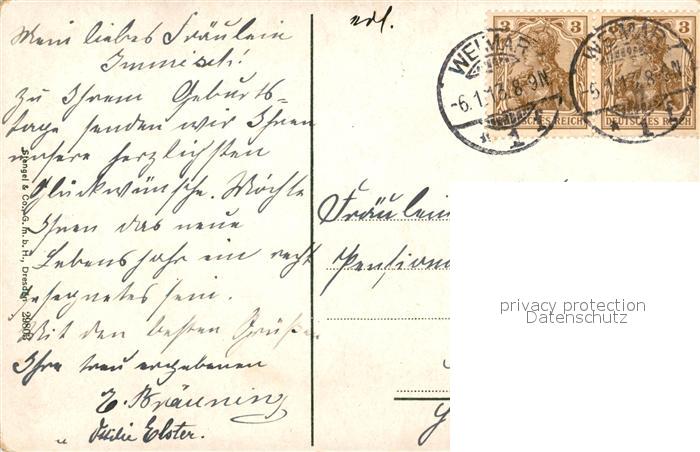 Mein liebes Fräulein
Immisch!
Zu Ihrem Geburts=
tage senden wir Ihnen
unsere herzlichsten
Glückwünsche. Möchte
Ihnen das neue
Lebensjahr ein recht
gesegnetes sein.
Mit den besten Grüßen
Ihre treu ergebenen
Bräuning
" Ottilie Elster.
Stengel & Co., G. m. b. H., Dresden 29808
erl.
3 3 3 3
WEIMAR
-6.1.13.8-9N
* 1
WEIMAR
-6.1.13.8-9N
* 1
DEUTSCHES REICH DEUTSCHES REICH
Fräulein
privacy protection
Datenschutz